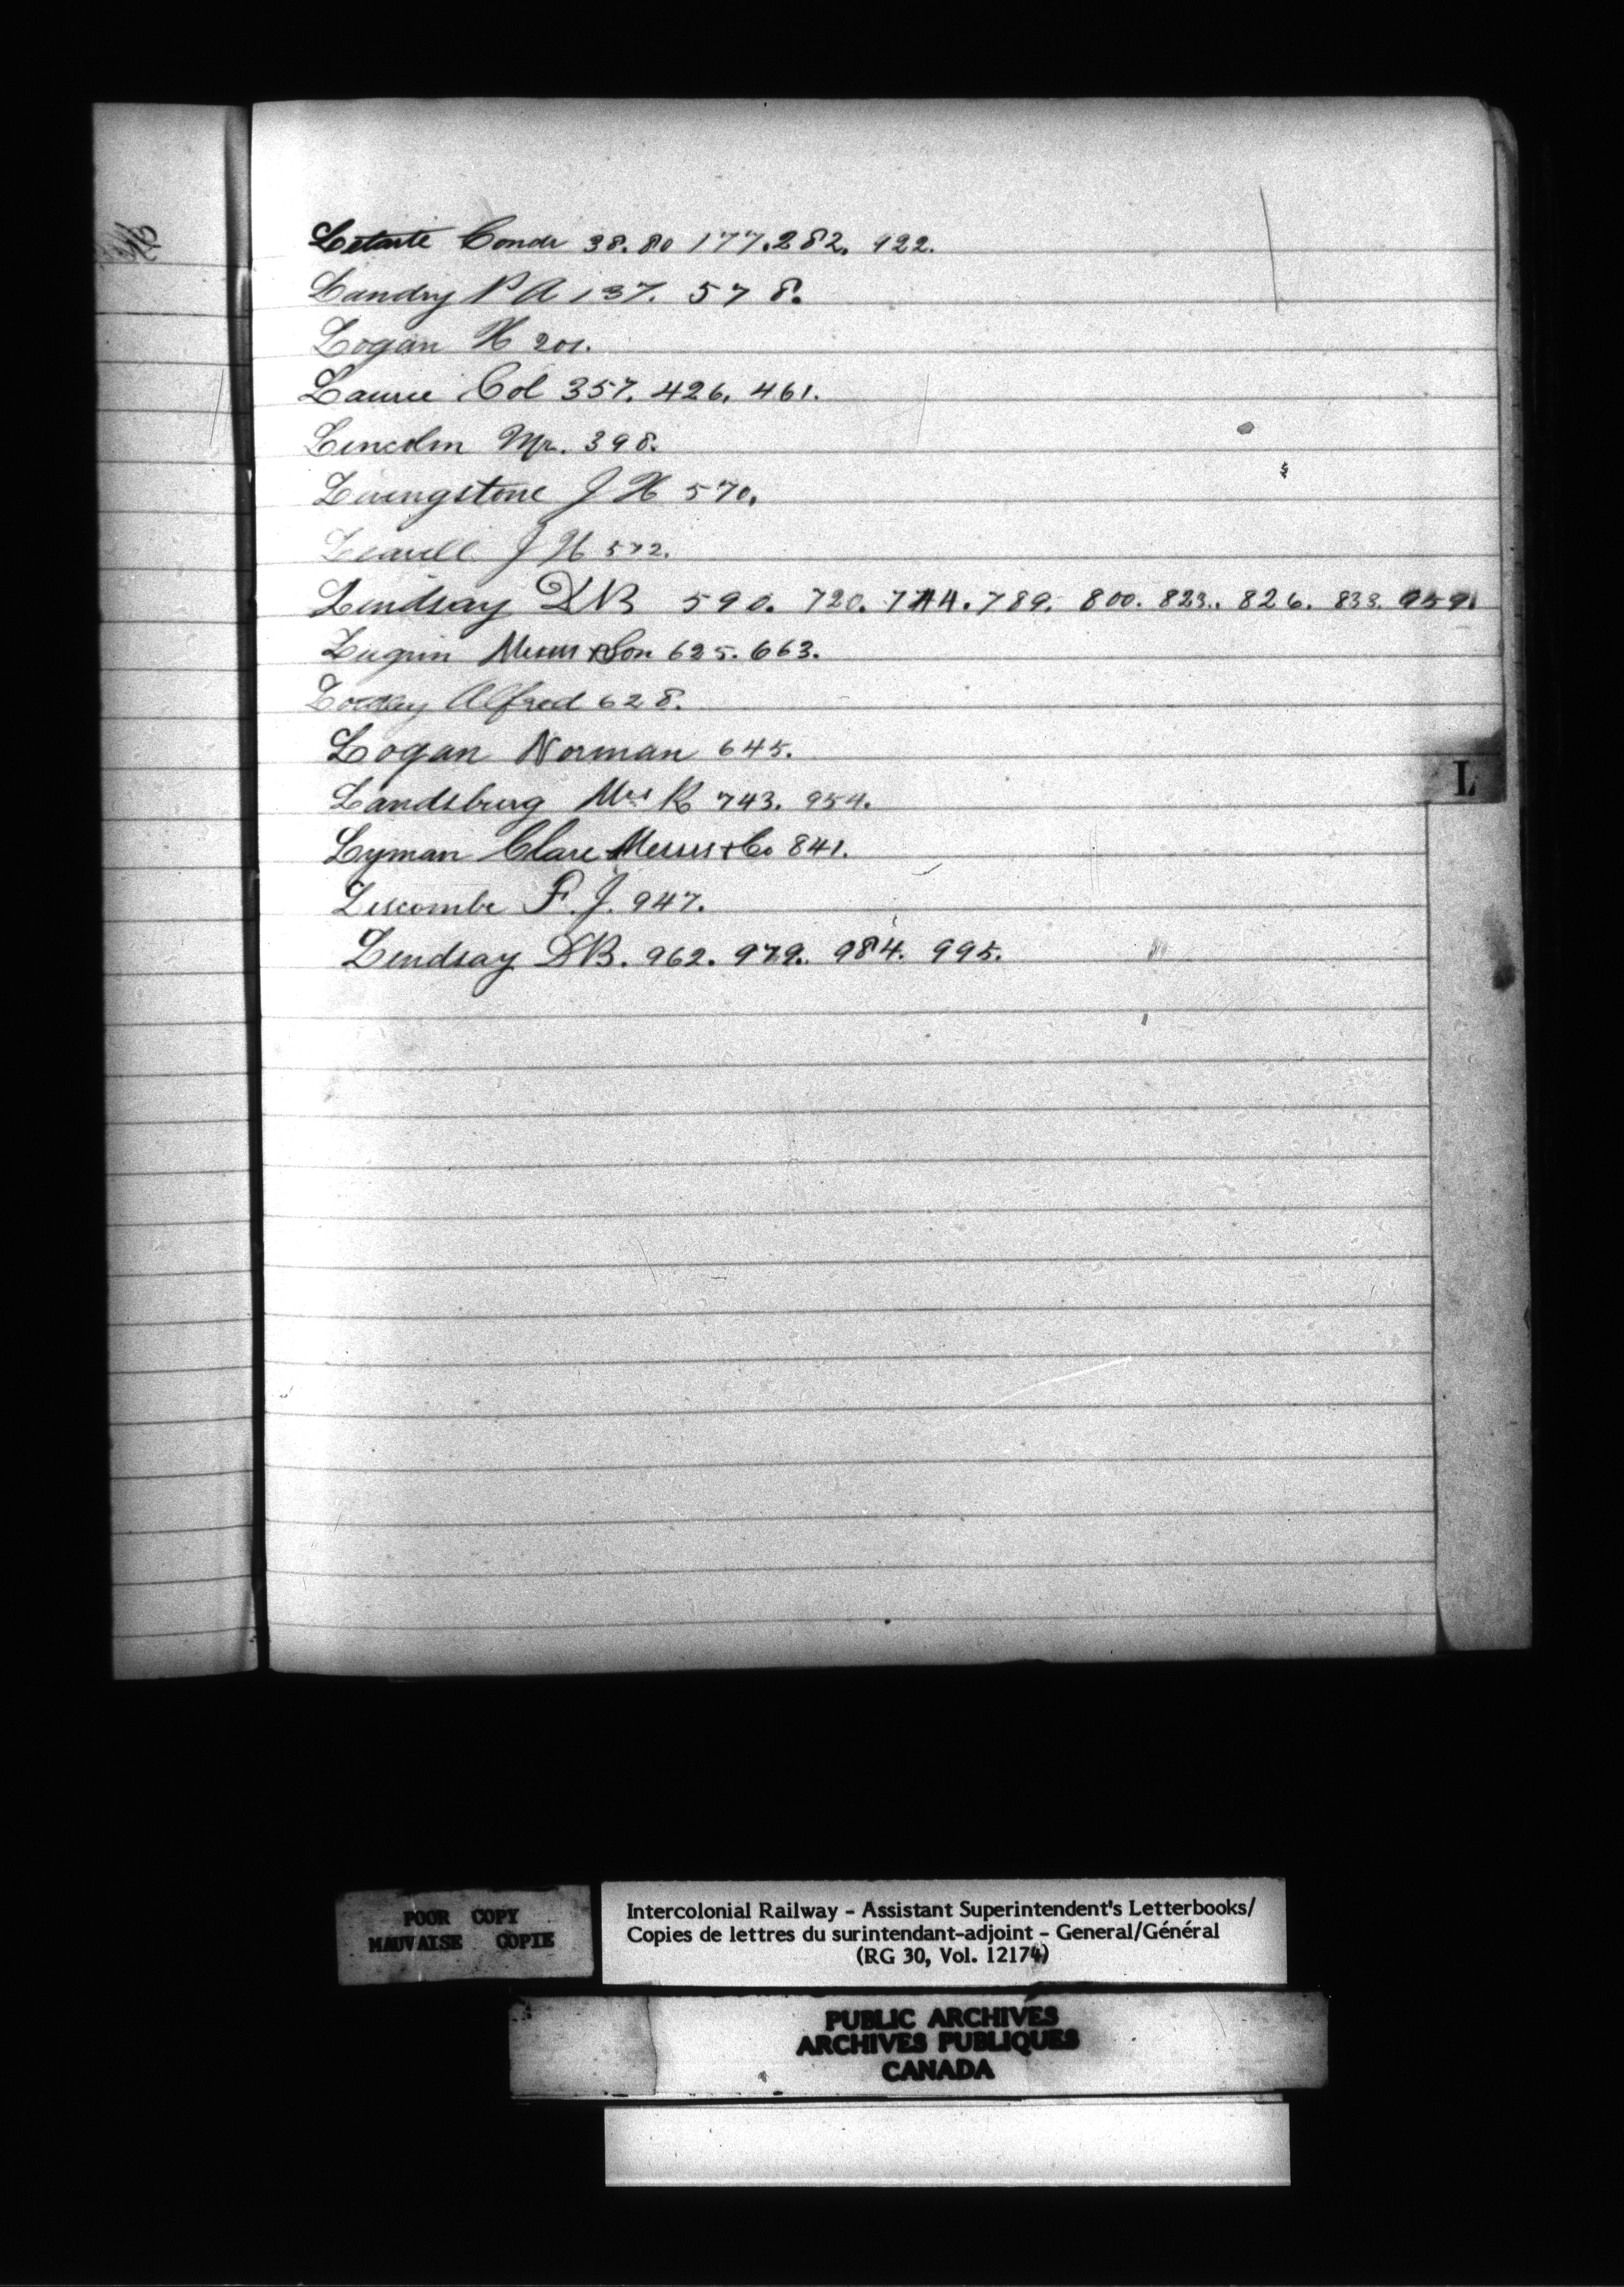 Letarte Condr 38. 80 177. 282. 922.
Landry P A 137. 578.
Logan H 201.
Laurie Col 357. 426. 461.
Lincoln Mr. 398.
Livingstone J H 570.
J H 572.
Lindsay D B 590. 720. 744. 789. 800. 823. 826. 833. 959.
Lugrin Messrs & Son 625. 663.
Alfred 628.
Logan Norman 645.
L
Landsburg Mrs R 743. 954.
Lyman Clare Messrs & Co 841.
Liscombe F. J. 947.
Lindsay D B. 962. 979. 984. 995.
POOR COPY
MAUVAISE COPIE
Intercolonial Railway - Assistant Superintendent's Letterbooks/
Copies de lettres du surintendant-adjoint - General/Général
(RG 30, Vol. 12174)
PUBLIC ARCHIVES
ARCHIVES PUBLIQUES
CANADA